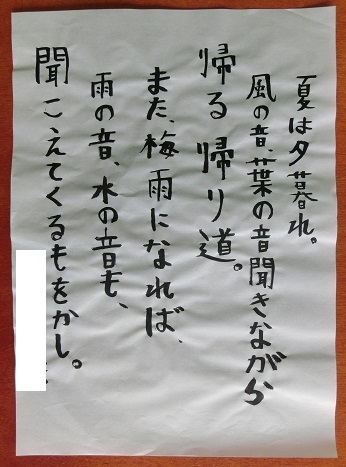 夏は夕暮れ。
風の音、葉の音聞きながら
帰る帰り道。
また、梅雨になれば、
雨の音、水の音も、
聞こえてくるもをかし。